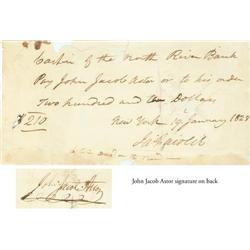 Cashier of the North River Bank
Pay John Jacob Astor or to his order
Two hundred and ten Dollars
$210
New York 19 January 1828
John Jacob Astor
John Jacob Astor signature on back